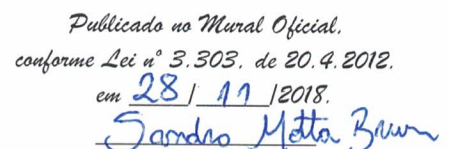 Publicado no Mural Oficial,
conforme Lei nº 3.303, de 20.4.2012.
em 28 / 11 /2018.
Sandro Motta